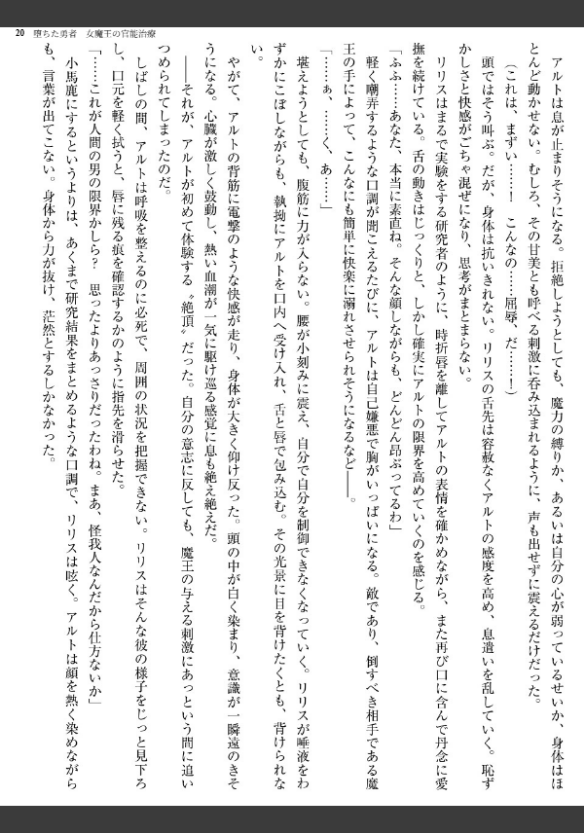 20 堕ちた勇者 女魔王の官能治療
アルトは息が止まりそうになる。拒絶しようとしても、魔力の縛りか、あるいは自分の心が弱っているせいか、身体はほ
とんど動かせない。むしろ、その甘美とも呼べる刺激に呑み込まれるように、声も出せずに震えるだけだった。
（これは、まずい……！ こんなの……屈辱、だ……！）
頭ではそう叫ぶ。だが、身体は抗いきれない。リリスの舌先は容赦なくアルトの感度を高め、息遣いを乱していく。恥ず
かしさと快感がごちゃ混ぜになり、思考がまとまらない。
リリスはまるで実験をする研究者のように、時折唇を離してアルトの表情を確かめながら、また再び口に含んで丹念に愛
撫を続けている。舌の動きはじっくりと、しかし確実にアルトの限界を高めていくのを感じる。
「ふふ……あなた、本当に素直ね。そんな顔しながらも、どんどん昂ぶってるわ」
軽く嘲弄するような口調が聞こえるたびに、アルトは自己嫌悪で胸がいっぱいになる。敵であり、倒すべき相手である魔
王の手によって、こんなにも簡単に快楽に溺れさせられそうになるなど――。
「……ぁ、……く、あ……」
堪えようとしても、腹筋に力が入らない。腰が小刻みに震え、自分で自分を制御できなくなっていく。リリスが唾液をわ
ずかにこぼしながらも、執拗にアルトを口内へ受け入れ、舌と唇で包み込む。その光景に目を背けたくとも、背けられな
い。
やがて、アルトの背筋に電撃のような快感が走り、身体が大きく仰け反った。頭の中が白く染まり、意識が一瞬遠のきそ
うになる。心臓が激しく鼓動し、熱い血潮が一気に駆け巡る感覚に息も絶え絶えだ。
――それが、アルトが初めて体験する〝絶頂〟だった。自分の意志に反しても、魔王の与える刺激にあっという間に追い
つめられてしまったのだ。
しばしの間、アルトは呼吸を整えるのに必死で、周囲の状況を把握できない。リリスはそんな彼の様子をじっと見下ろ
し、口元を軽く拭うと、唇に残る痕を確認するかのように指先を滑らせた。
「……これが人間の男の限界かしら？ 思ったよりあっさりだったわね。まあ、怪我人なんだから仕方ないか」
小馬鹿にするというよりは、あくまで研究結果をまとめるような口調で、リリスは呟く。アルトは顔を熱く染めながら
も、言葉が出てこない。身体から力が抜け、茫然とするしかなかった。